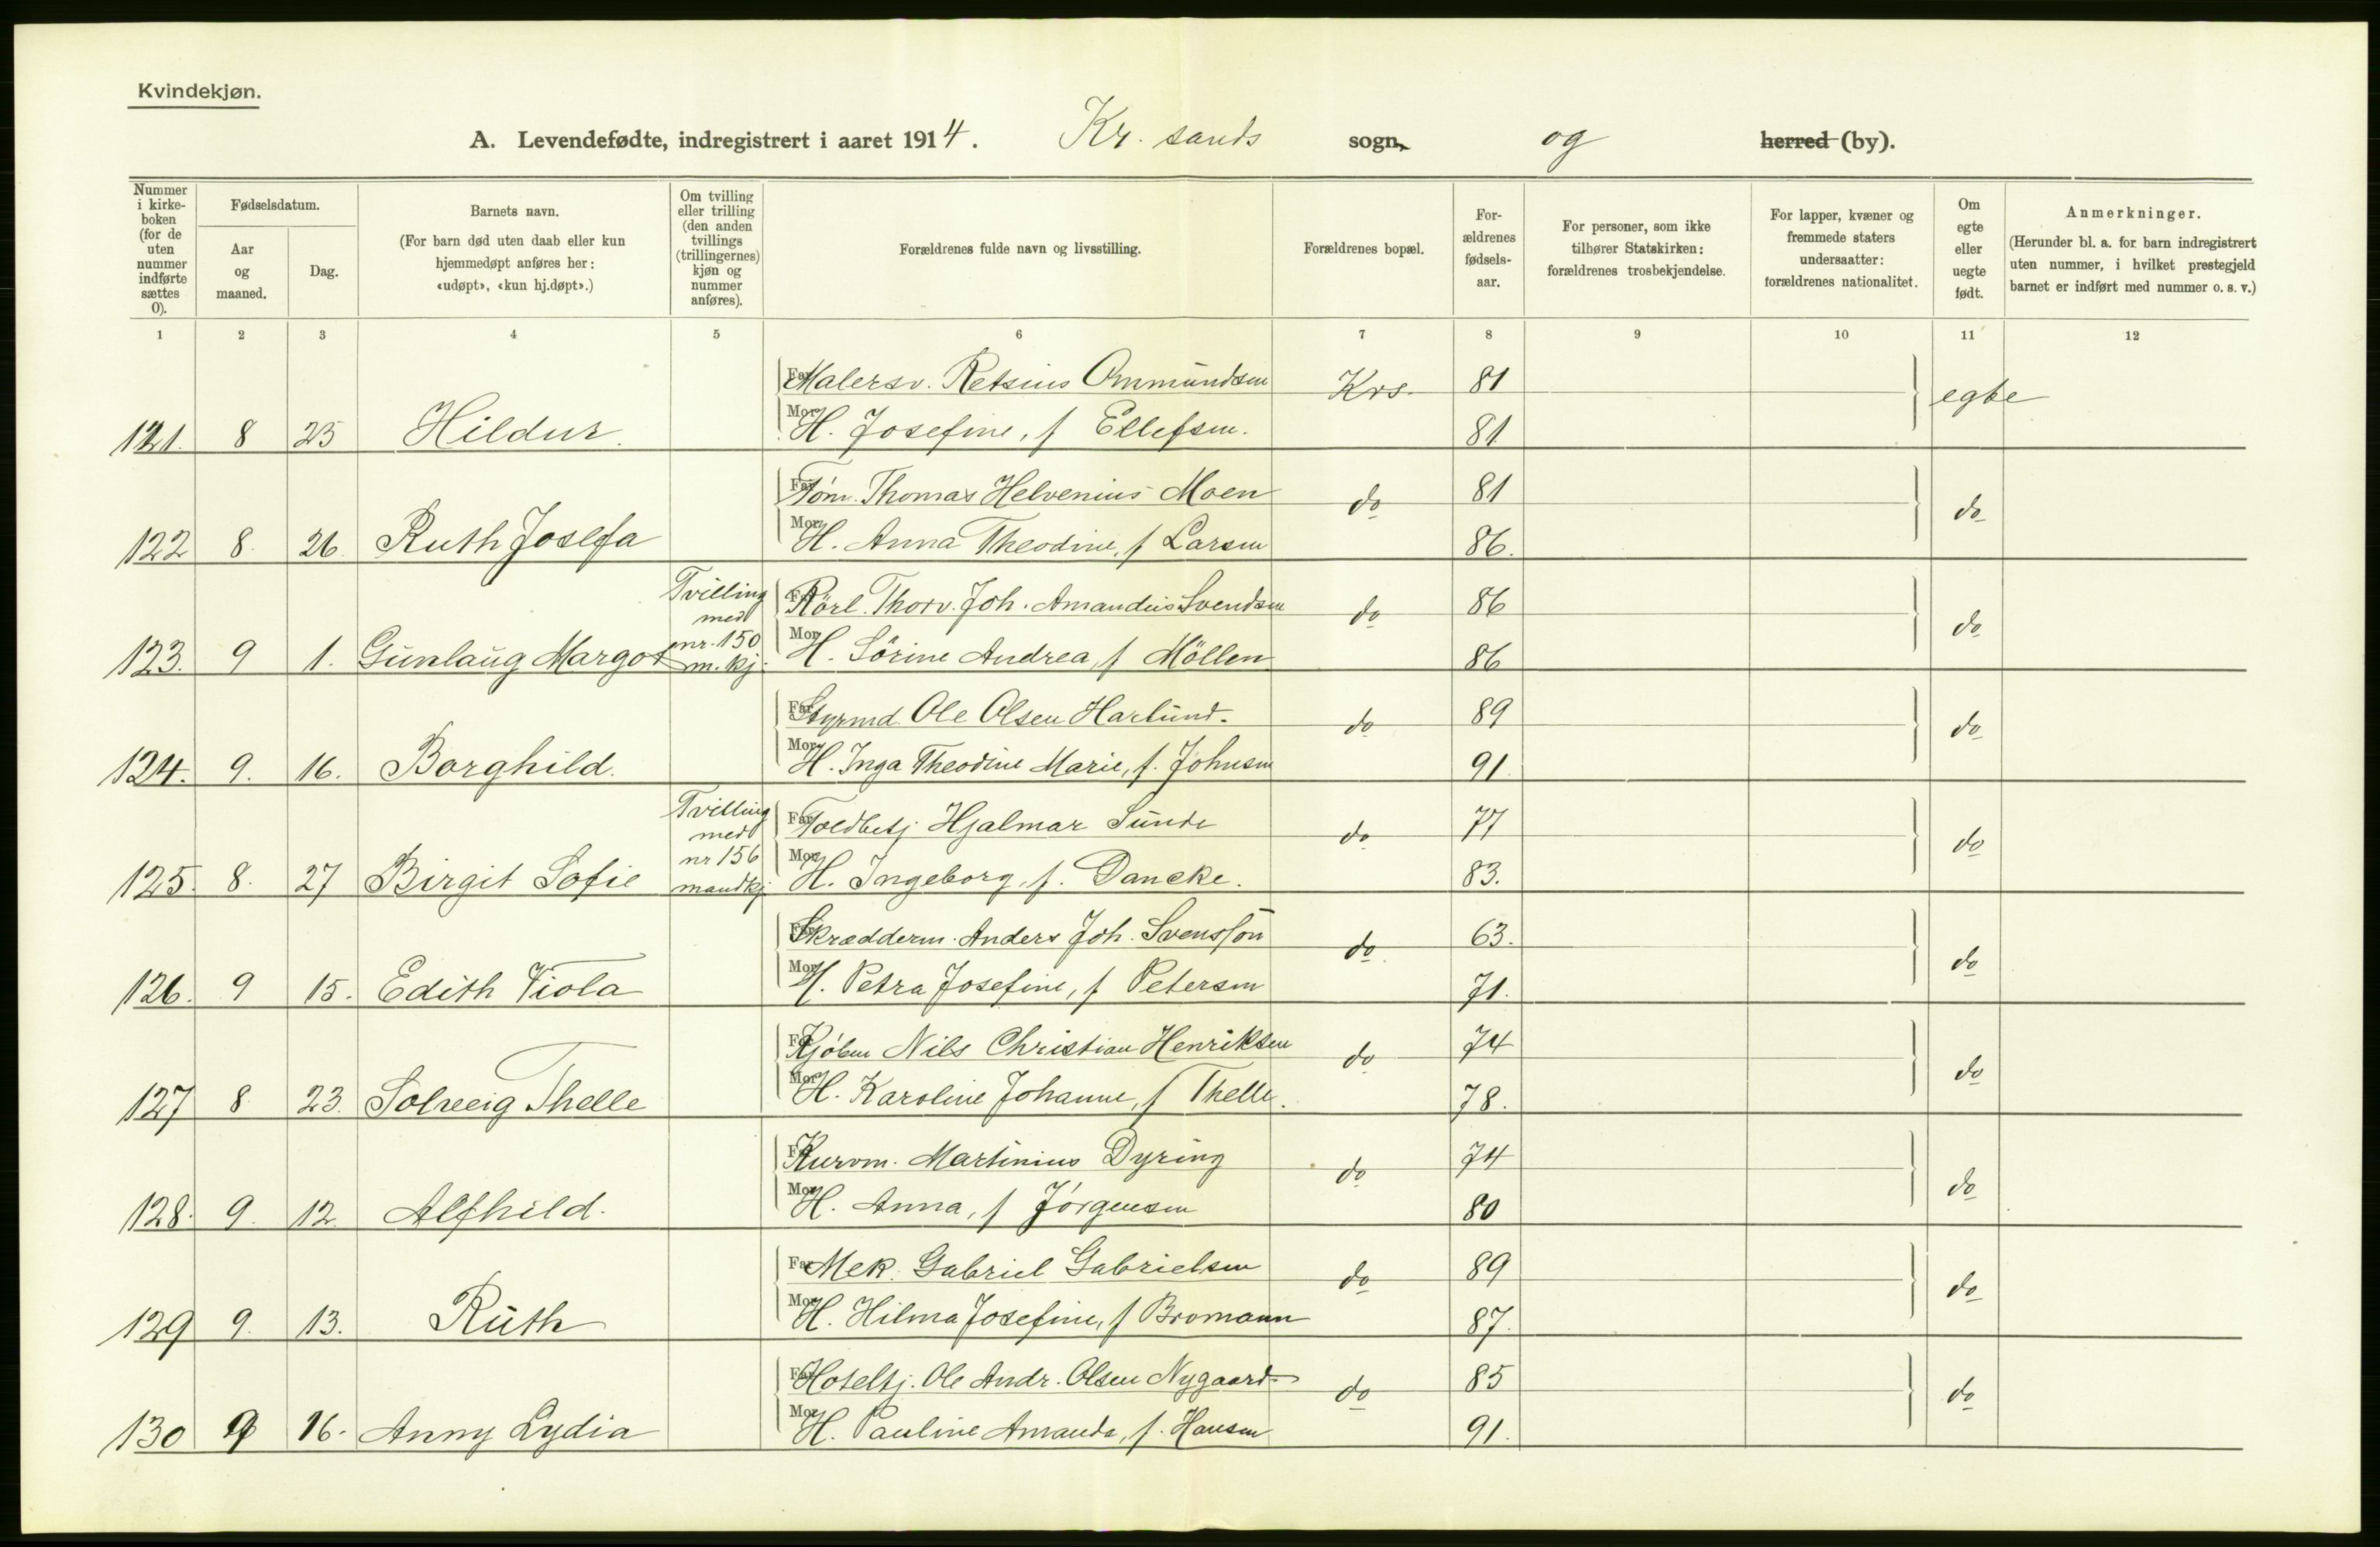 Kvindekjøn.
A. Levendefødte, indregistrert i aaret 1914. Kr. sands sogn, og herred (by).
Nummer i kirkeboken (for de uten nummer indførte sættes 0).
Fødselsdatum.
Aar og maaned.
Dag.
Barnets navn.
(For barn død uten daab eller kun hjemmedøpt anføres her: «udøpt», «kun hj.døpt».)
Om tvilling eller trilling (den anden tvillings (trillingernes) kjøn og nummer anføres).
Forældrenes fulde navn og livsstilling.
Forældrenes bopæl.
Forældrenes fødselsaar.
For personer, som ikke tilhører Statskirken: forældrenes trosbekjendelse.
For lapper, kvæner og fremmede staters undersaatter: forældrenes nationalitet.
Om egte eller uegte født.
Anmerkninger.
(Herunder bl. a. for barn indregistrert uten nummer, i hvilket prestegjeld barnet er indført med nummer o. s. v.)
1 2 3 4 5 6 7 8 9 10 11 12
Far Malersv. Retsius Ommundsen Krs. 81 egte
121. 8 25 Hildur. Mor H. Josefine, f Ellefsen. 81
Far Tøm. Thomas Helvenius Moen do 81 do
122 8. 26. Ruth Josefa Mor H. Anna Theodine, f Larsen 86.
Tvilling med nr. 150 m. kj.
Far Rörl. Thorv. Joh. Amandus Svendsen do 86 do
123. 9 1. Gunlaug Margot Mor H. Sörine Andrea, f Möllen 86
Far Styrmd. Ole Olsen Harlund. do 89 do
124. 9. 16. Borghild. Mor H. Inga Theodine Marie, f. Johnsen 91.
Tvilling med nr 156 mandkj
Far Toldbetj Hjalmar Sunde do 77 do
125. 8. 27 Birgit Sofie Mor H. Ingeborg, f. Dancke. 83.
Far Skrædderm. Anders Joh. Svensson do 63. do
126. 9 15. Edith Viola Mor H. Petra Josefine, f Petersen 71.
Far Kjøbm Nils Christian Henriksen do 74 do
127 8 23. Solveig Thelle Mor H. Karoline Johanne, f Thelle. 78.
Far Kurvm. Martinius Dyring do 74 do
128. 9. 12. Alfhild. Mor H. Anna, f Jörgensen 80
Far Mek. Gabriel Gabrielsen do 89 do
129 9. 13. Ruth Mor H. Hilma Josefine, f Bromann 87.
Far Hoteltj. Ole Andr. Olsen Nygaard do 85 do
130 9 16. Anny Lydia Mor H. Pauline Amanda, f. Hansen 91.